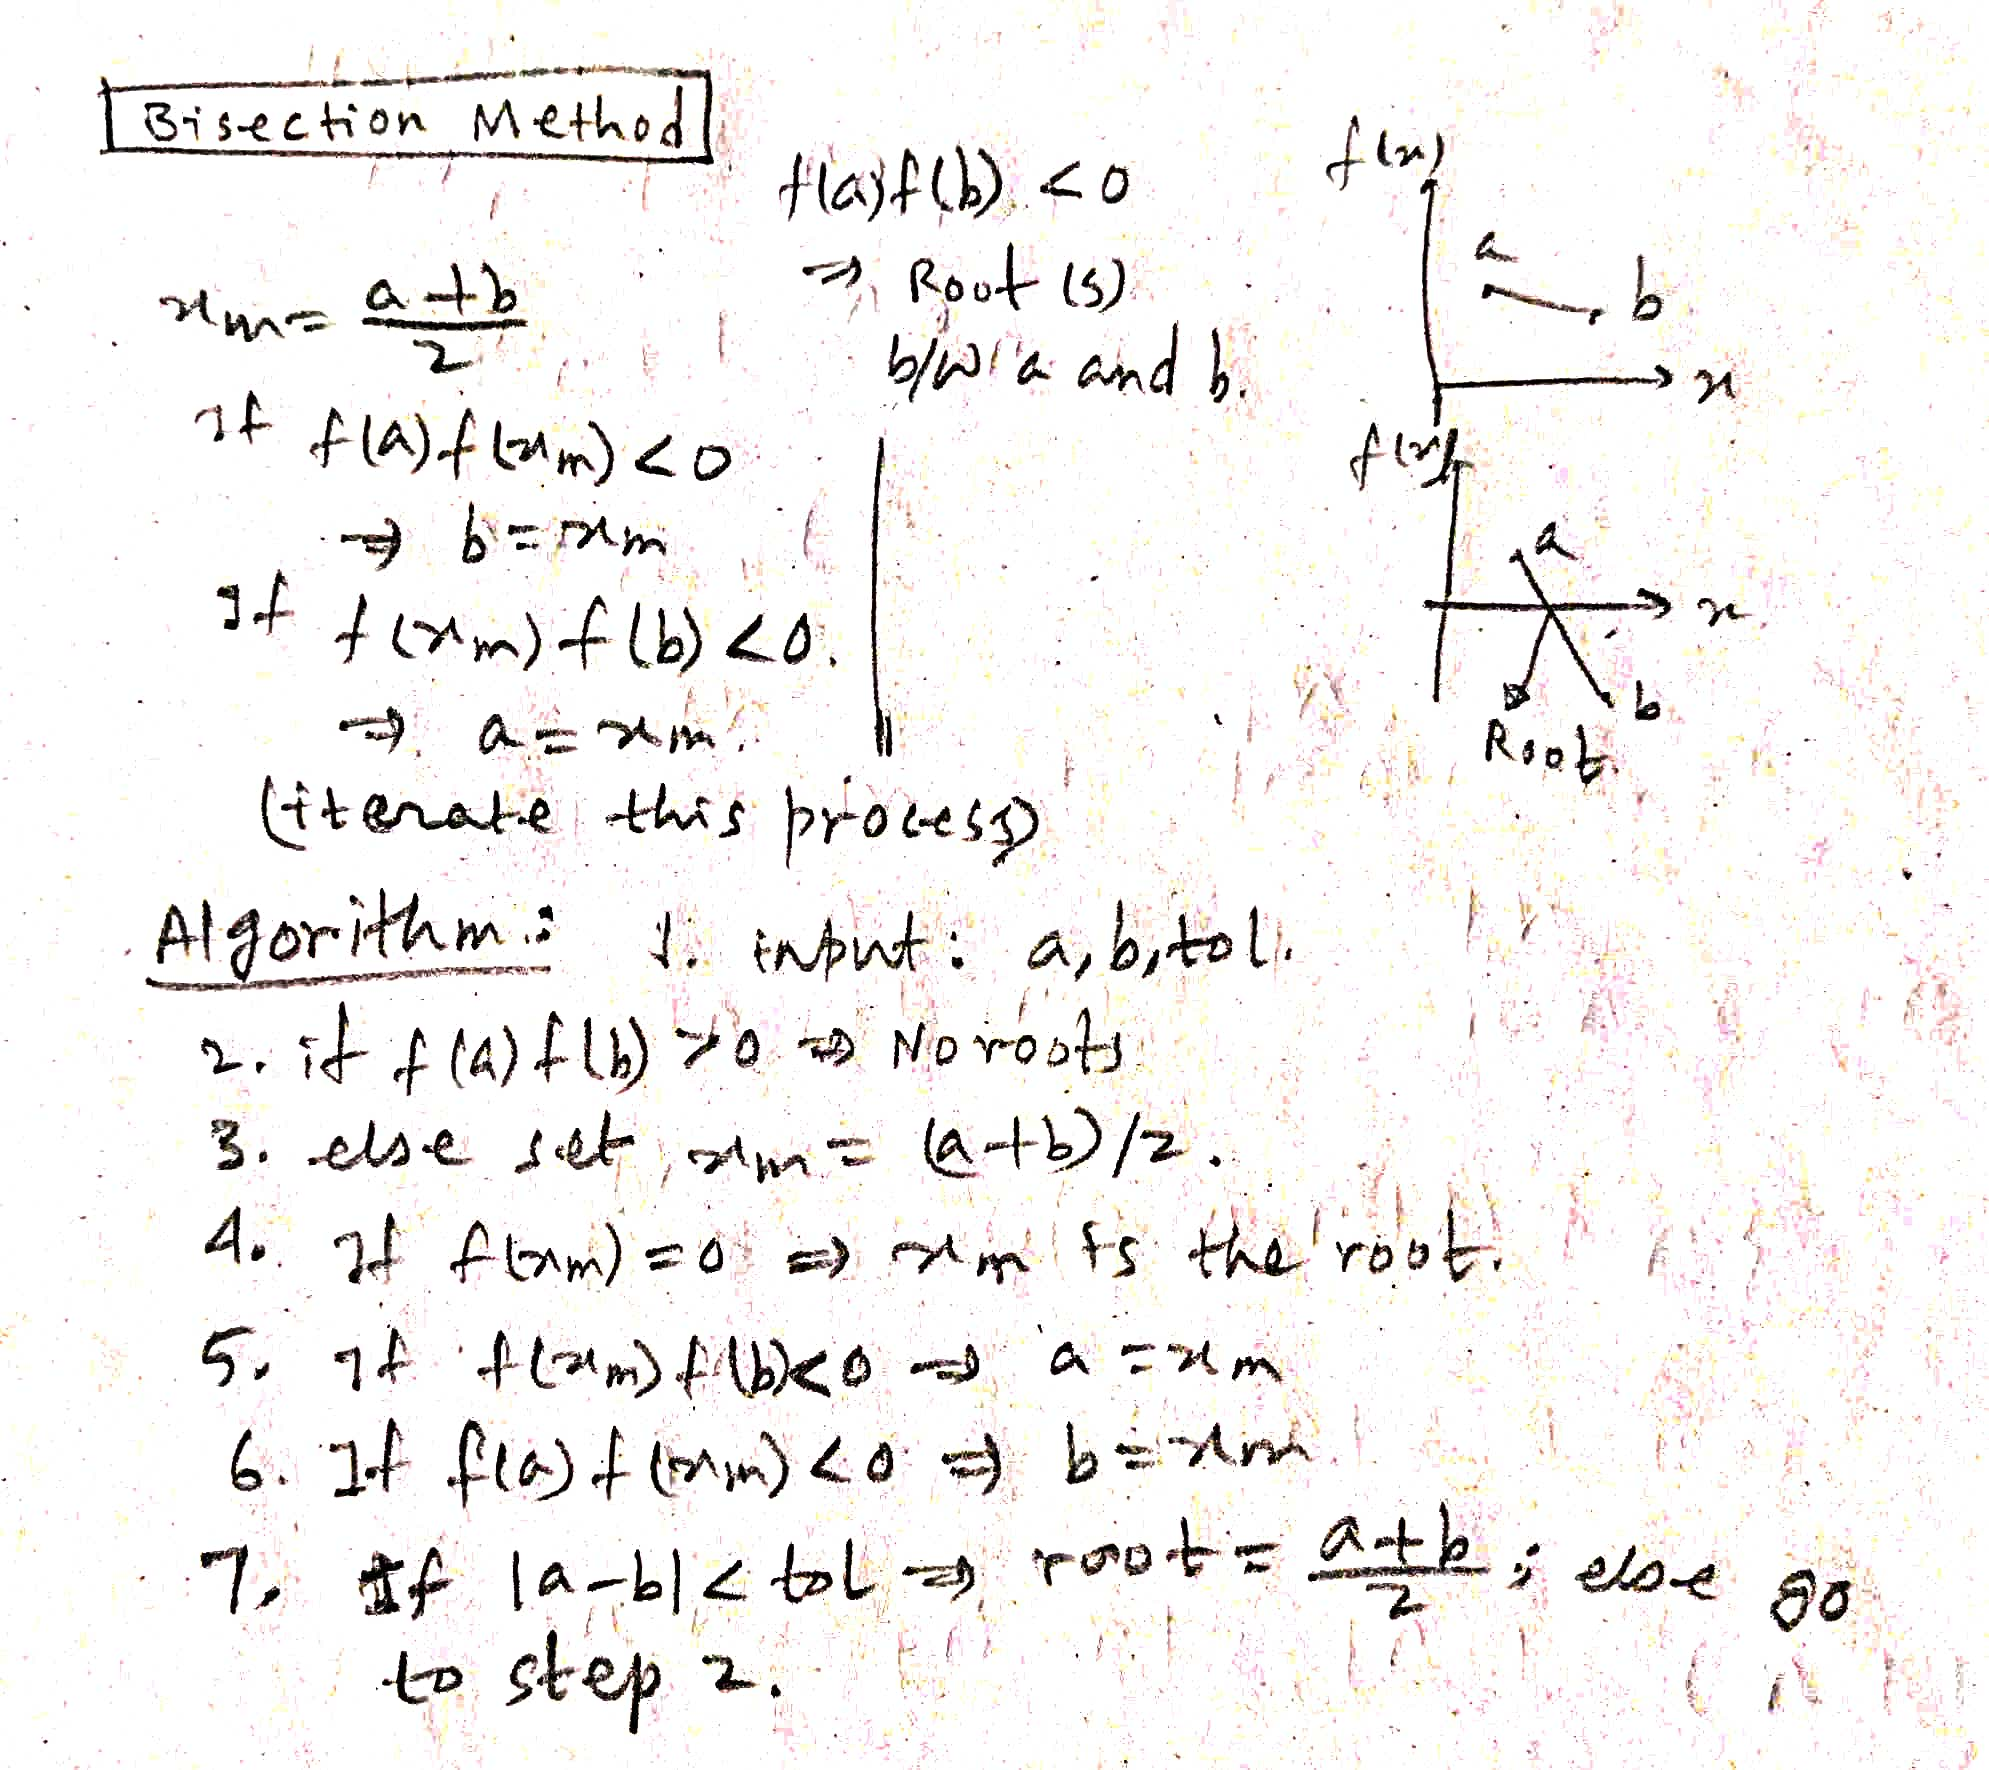 Bisection Method
f(a)f(b) < 0
⇒ Root(s)
b/w a and b.
xm = (a+b)/2
If f(a)f(xm) < 0
⇒ b = xm
If f(xm)f(b) < 0.
⇒ a = xm.
(iterate this process)
f(x)
a
b
x
f(x)
a
x
b
Root.
Algorithm: 1. input: a, b, tol.
2. if f(a)f(b) > 0 ⇒ No roots
3. else set xm = (a+b)/2.
4. If f(xm) = 0 ⇒ xm is the root.
5. If f(xm)f(b) < 0 ⇒ a = xm
6. If f(a)f(xm) < 0 ⇒ b = xm
7. If |a-b| < tol ⇒ root = (a+b)/2 ; else go
to step 2.